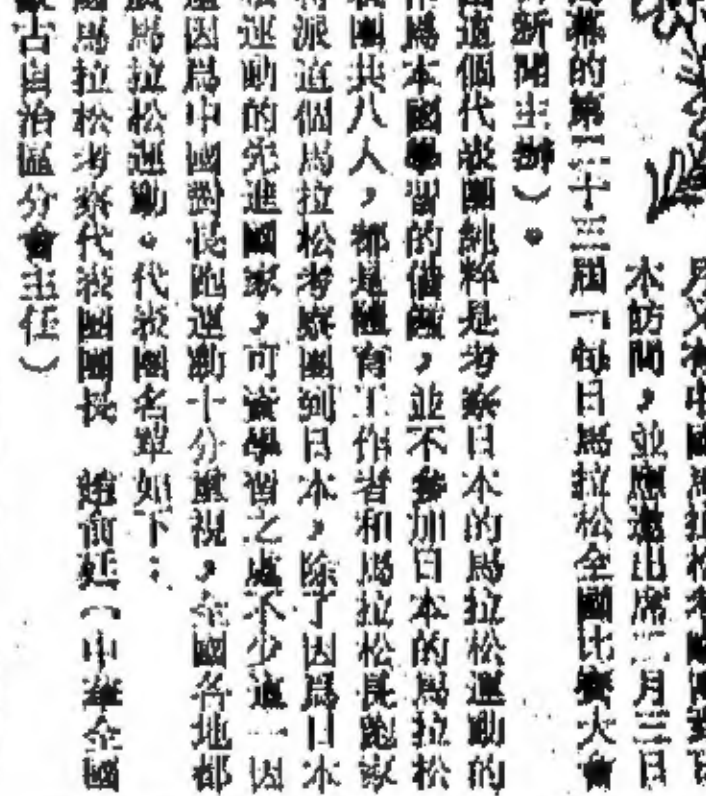 月又有中國馬拉松考察團到日
本訪問，並應邀出席二月三日
幕的第二十三屆「每日馬拉松全國比賽大會
新聞主辦）。
這個代表團純粹是考察日本的馬拉松運動的
作爲本國學習的借鏡，並不參加日本的馬拉松
團共八人，都是體育工作者和馬拉松長跑家
派這個馬拉松考察團到日本，除了因爲日本
運動的先進國家，可資學習之處不少這一因
因爲中國對長跑運動十分重視，全國各地都
馬拉松運動。代表團名單如下：
國馬拉松考察代表團團長 （中華全國
蒙古自治區分會主任）